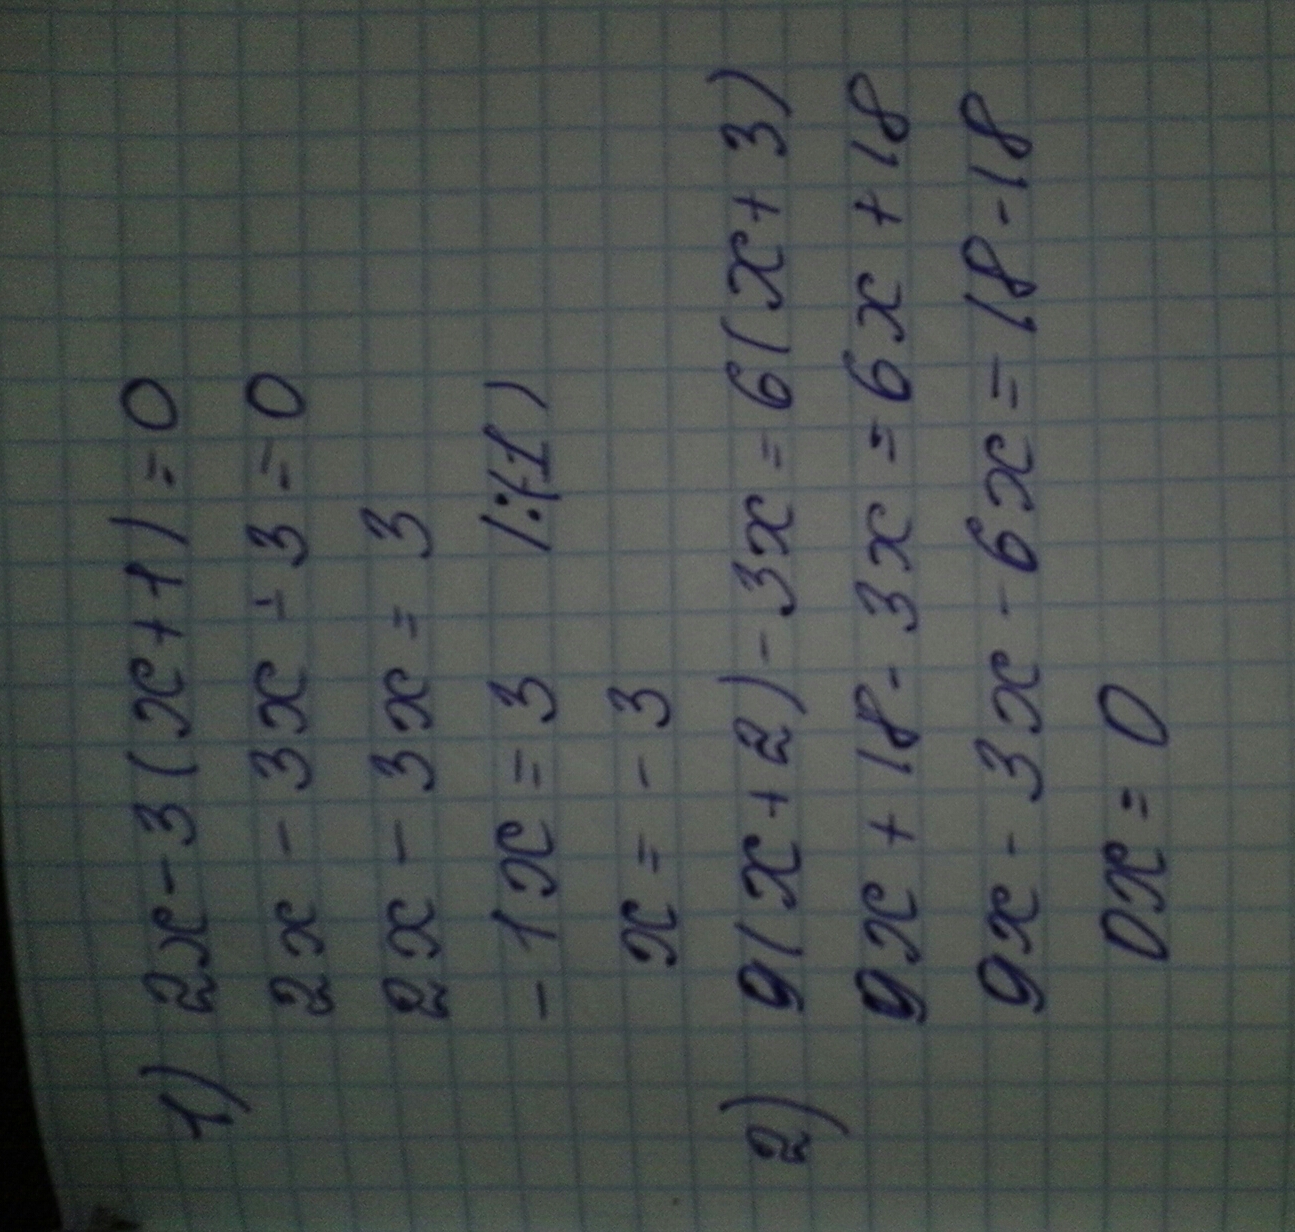 1) 2x - 3(x+1) = 0
2x - 3x - 3 = 0
2x - 3x = 3
-1x = 3 /:(-1)
x = -3
2) 9(x+2) - 3x = 6(x+3)
9x + 18 - 3x = 6x + 18
9x - 3x - 6x = 18 - 18
0x = 0